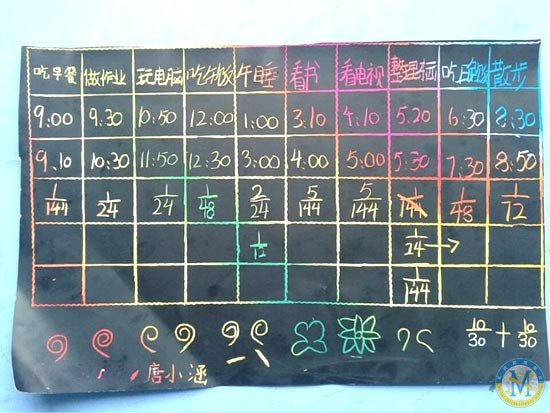 吃早餐 做作业 玩电脑 吃午饭 午睡 看书 看电视 整理标 吃晚饭 散步
9:00 9:30 10:50 12:00 1:00 3:10 4:10 5:20 6:30 8:30
9:10 10:30 11:50 12:30 3:00 4:00 5:00 5:30 7:30 8:50
1/144 1/24 1/24 1/48 2/24 5/144 5/144 1/144 1/48 1/72
1/12 1/24 →
1/144
10/30 + 10/30
唐小涵